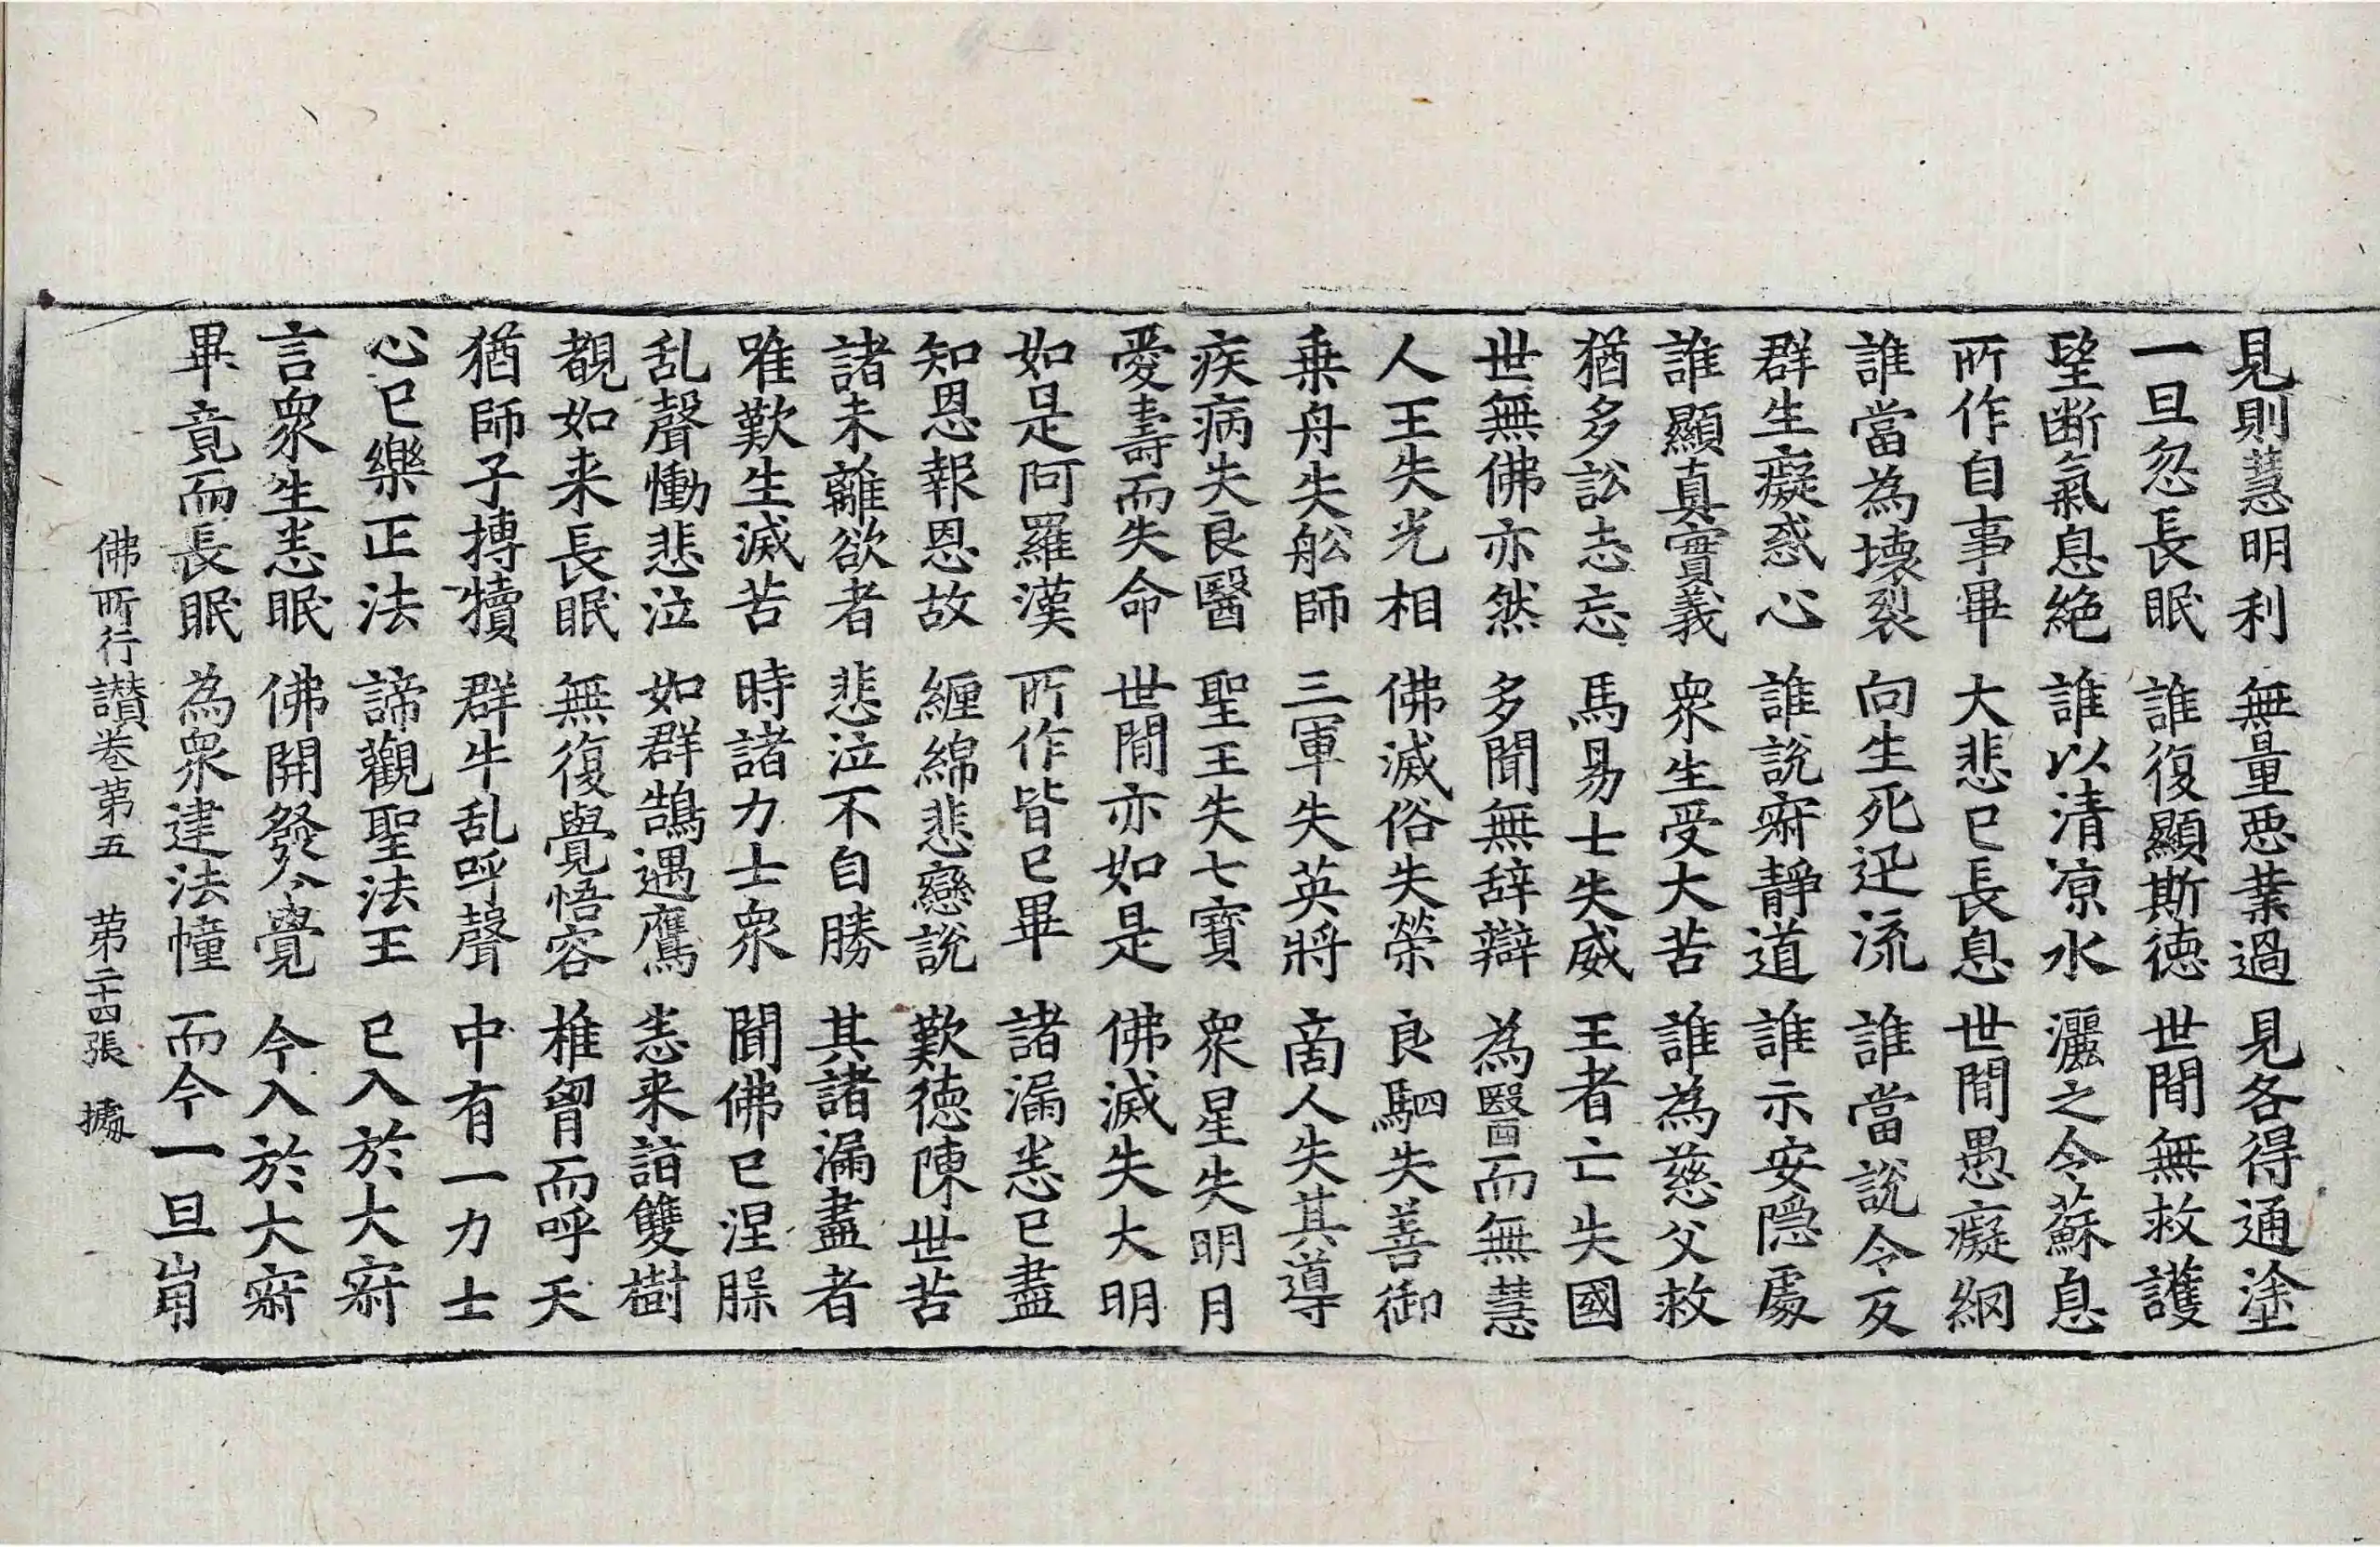 見則慧明利 無量惡業過 見各得通塗
一旦忽長眠 誰復顯斯德 世間無救護
望断氣息絶 誰以清凉水 灑之令蘇息
所作自事畢 大悲已長息 世間愚癡網
誰當為壞裂 向生死迅流 誰當說令反
群生癡惑心 誰說寂靜道 誰示安隠處
誰顯真實義 衆生受大苦 誰為慈父救
猶多訟志忘 馬昜士失威 王者亡失國
世無佛亦然 多聞無辞辯 為醫而無慧
人王失光相 佛滅俗失榮 良駟失善御
乗舟失舩師 三軍失英將 商人失其導
疾病失良醫 聖王失七寶 衆星失明月
愛壽而失命 世間亦如是 佛滅失大明
如是阿羅漢 所作皆已畢 諸漏悉已盡
知恩報恩故 纏綿悲戀說 歎德陳世苦
諸未離欲者 悲泣不自勝 其諸漏盡者
唯歎生滅苦 時諸力士衆 聞佛已涅槃
乱聲慟悲泣 如群鵠遇鷹 悉来詣雙樹
覩如来長眠 無復覺悟容 椎胷而呼天
猶師子搏犢 群牛乱呼聲 中有一力士
心已樂正法 諦觀聖法王 已入於大寂
言衆生悉眠 佛開發令覺 今入於大寂
畢竟而長眠 為衆建法幢 而今一旦崩
佛所行讃卷第五 第二十四張 據